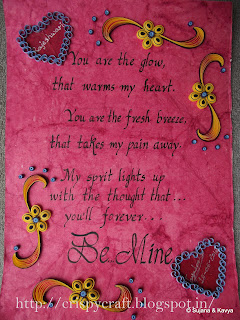 You are the glow,
that warms my heart.
You are the fresh breeze,
that takes my pain away.
My sprit lights up
with the thought that...
you'll forever...
Be Mine
http://crispycraft.blogspot.in/
© Sujana & Kavya